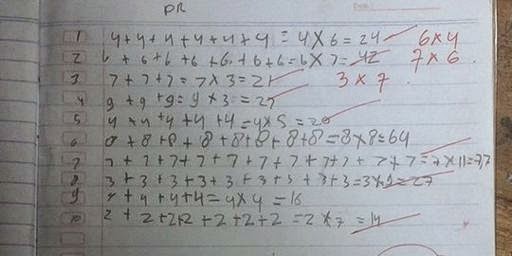 PR
1 4+4+4+4+4+4 = 4×6 = 24 6×4
2 6+6+6+6+6+6+6=6×7=42 7×6
3 7+7+7=7×3=21 3×7
4 9+9+9=9×3=27
5 4+4+4+4+4=4×5=20
6 8+8+8+8+8+8+8+8=8×8=64
7 7+7+7+7+7+7+7+7+7+7+7=7×11=77
8 3+3+3+3+3+3+3+3+3=3×9=27
9 4+4+4+4=4×4=16
10 2+2+2+2+2+2+2=2×7=14